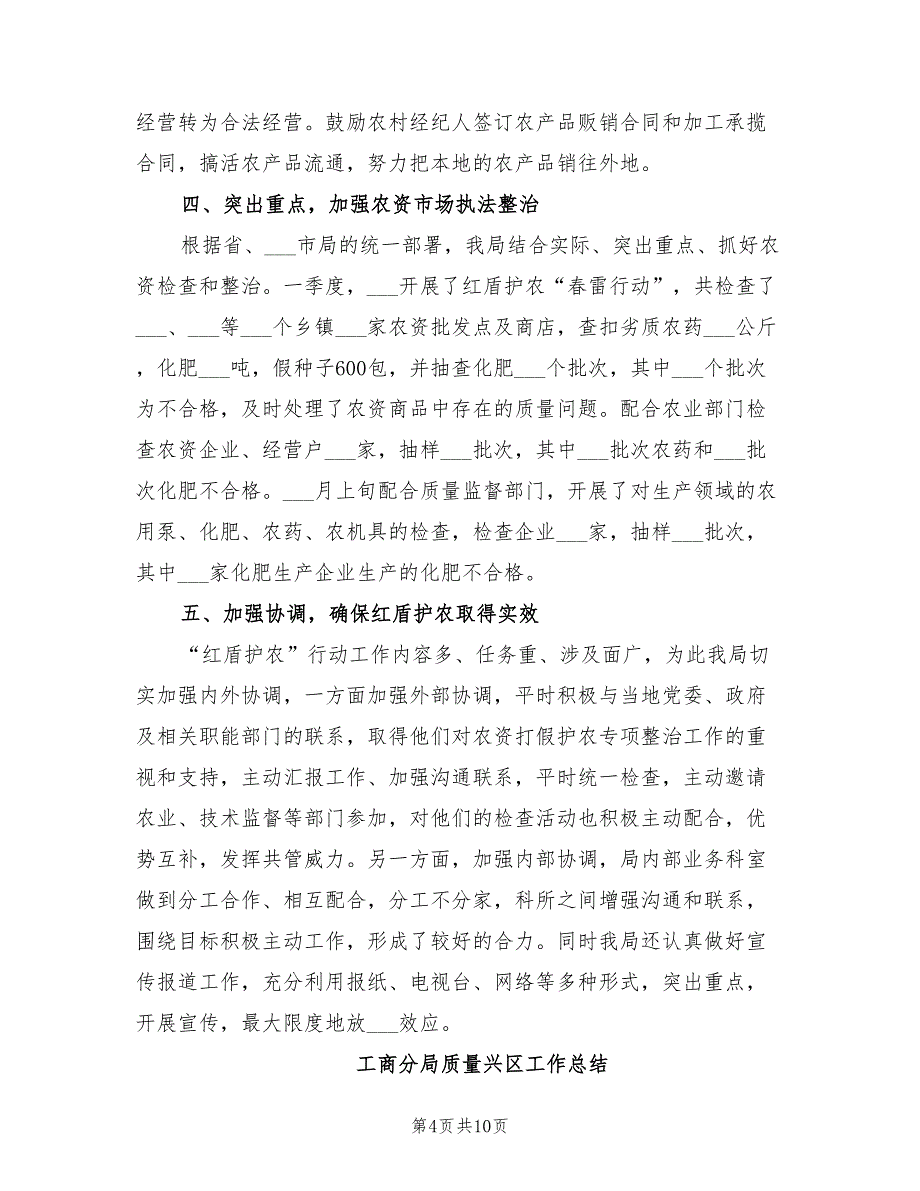 经营转为合法经营。鼓励农村经纪人签订农产品贩销合同和加工承揽
合同，搞活农产品流通，努力把本地的农产品销往外地。
四、突出重点，加强农资市场执法整治
根据省、___市局的统一部署，我局结合实际、突出重点、抓好农
资检查和整治。一季度，___开展了红盾护农“春雷行动”，共检查了
___、___等___个乡镇___家农资批发点及商店，查扣劣质农药___公斤
，化肥___吨，假种子600包，并抽查化肥___个批次，其中___个批次
为不合格，及时处理了农资商品中存在的质量问题。配合农业部门检
查农资企业、经营户___家，抽样___批次，其中___批次农药和___批
次化肥不合格。___月上旬配合质量监督部门，开展了对生产领域的农
用泵、化肥、农药、农机具的检查，检查企业___家，抽样___批次，
其中___家化肥生产企业生产的化肥不合格。
五、加强协调，确保红盾护农取得实效
“红盾护农”行动工作内容多、任务重、涉及面广，为此我局切
实加强内外协调，一方面加强外部协调，平时积极与当地党委、政府
及相关职能部门的联系，取得他们对农资打假护农专项整治工作的重
视和支持，主动汇报工作、加强沟通联系，平时统一检查，主动邀请
农业、技术监督等部门参加，对他们的检查活动也积极主动配合，优
势互补，发挥共管威力。另一方面，加强内部协调，局内部业务科室
做到分工合作、相互配合，分工不分家，科所之间增强沟通和联系，
围绕目标积极主动工作，形成了较好的合力。同时我局还认真做好宣
传报道工作，充分利用报纸、电视台、网络等多种形式，突出重点，
开展宣传，最大限度地放___效应。
工商分局质量兴区工作总结
第4页共10页